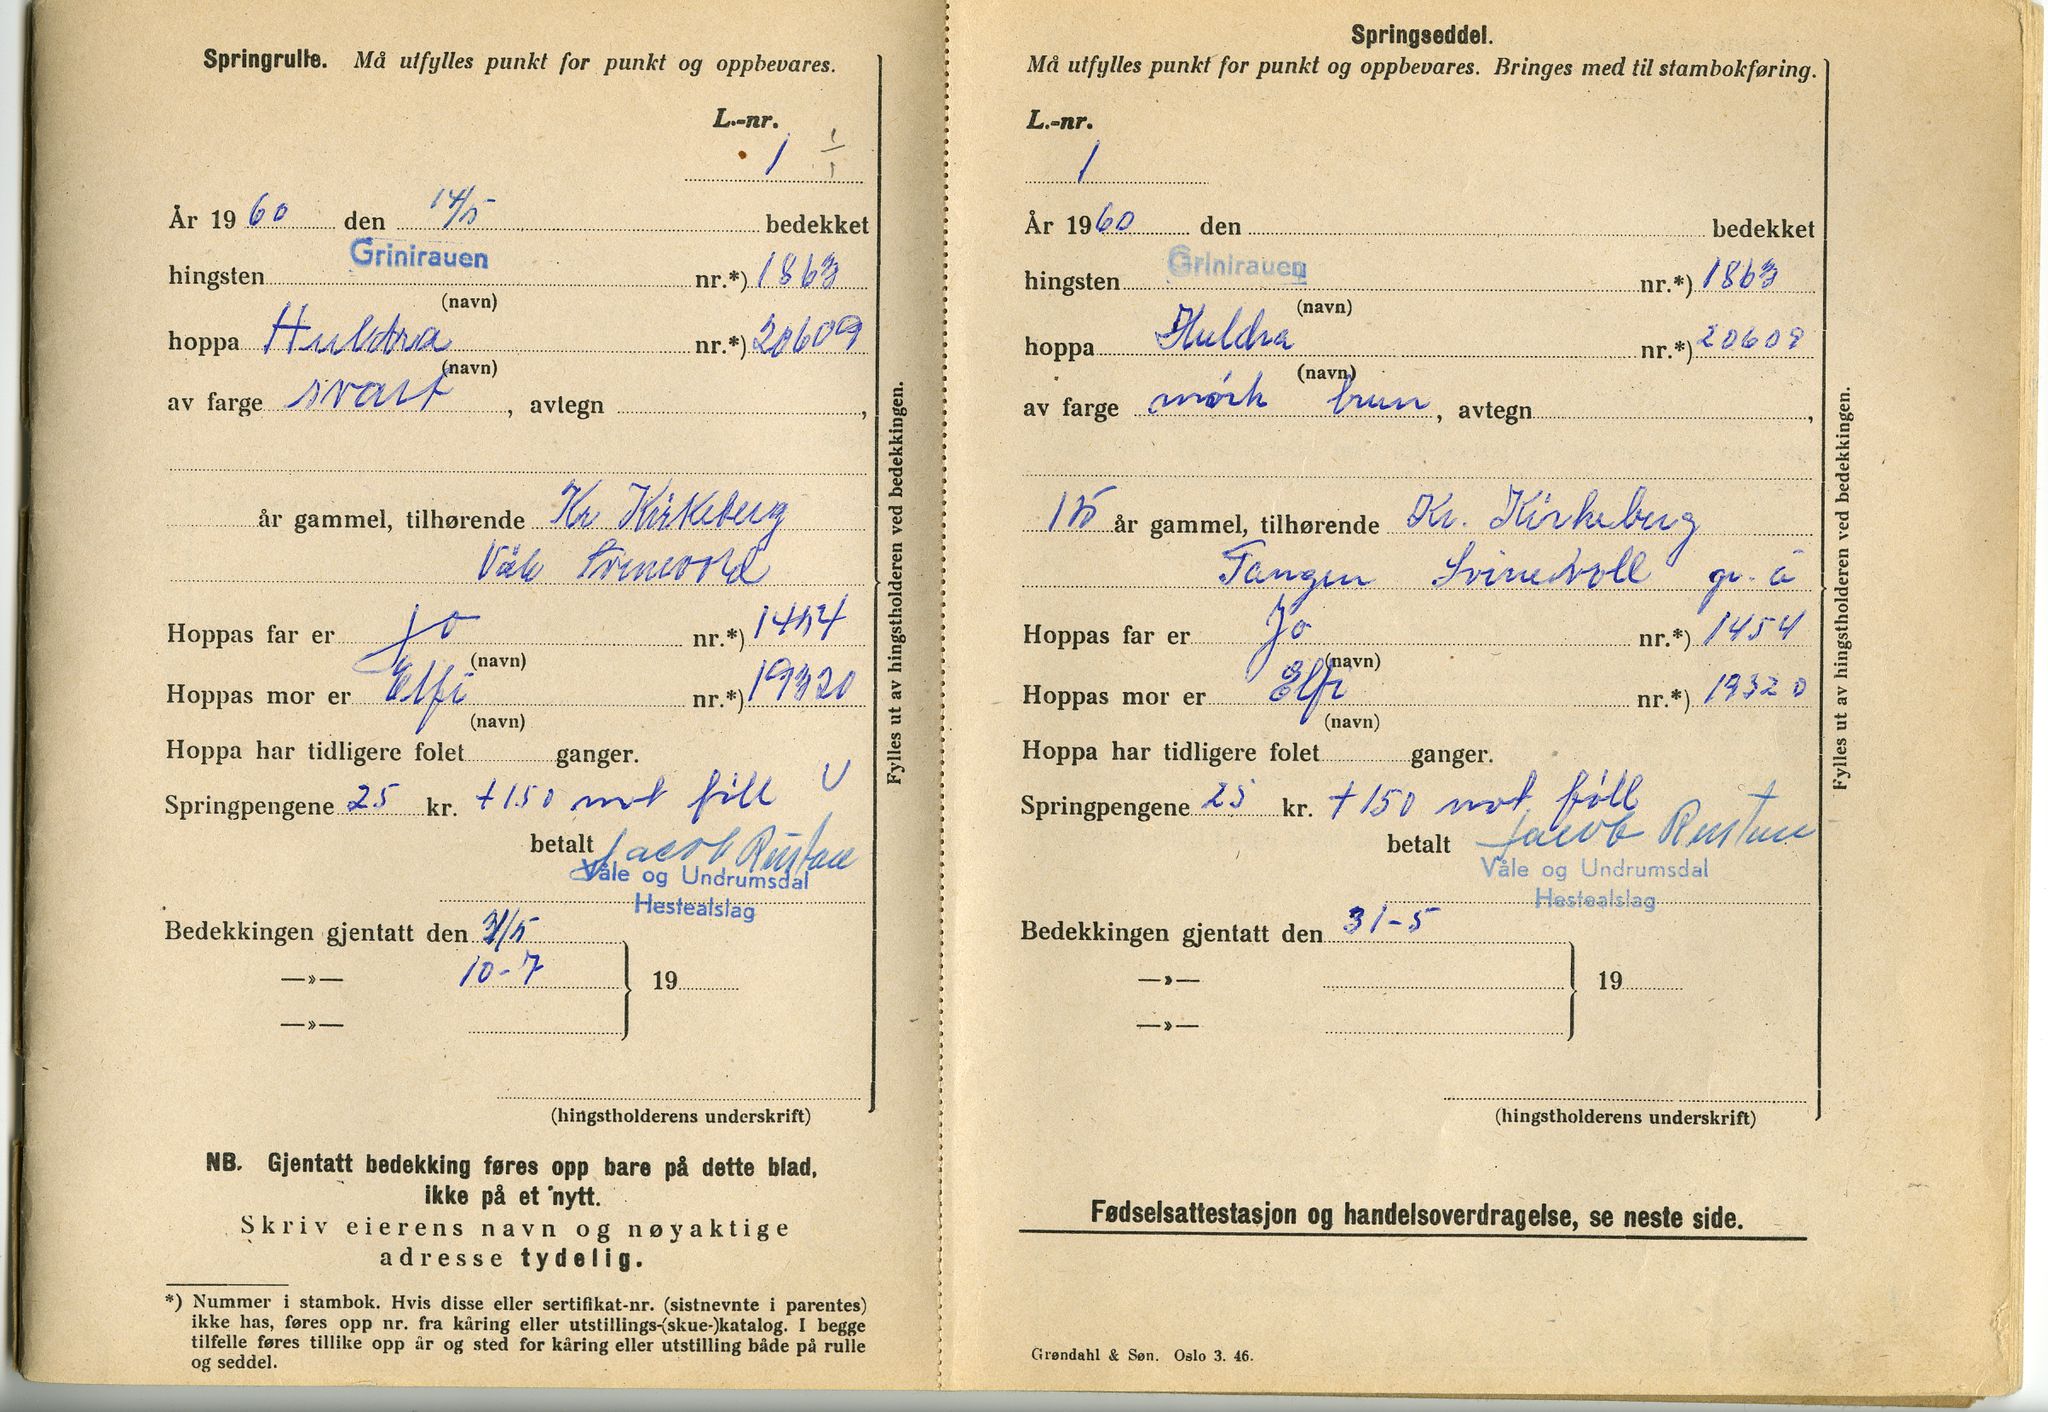 Springrulle. Må utfylles punkt for punkt og oppbevares.
L.-nr.
1 1/1
År 1960 den 14/5 bedekket
hingsten Grinirauen nr.*) 1863
(navn)
hoppa Huldra nr.*) 20609
(navn)
av farge svart, avtegn ,
år gammel, tilhørende Kr Kirkeberg
Våle Svinevold
Hoppas far er Jo nr.*) 1454
(navn)
Hoppas mor er Elfi nr.*) 19320
(navn)
Hoppa har tidligere folet ganger.
Springpengene 25 kr. + 150 mot föll U
betalt Jacob Rustan
Våle og Undrumsdal
Hestealslag
Bedekkingen gjentatt den 31/5
—»— 10-7 19
—»—
(hingstholderens underskrift)
Fylles ut av hingstholderen ved bedekkingen.
NB. Gjentatt bedekking føres opp bare på dette blad,
ikke på et nytt.
Skriv eierens navn og nøyaktige
adresse tydelig.
*) Nummer i stambok. Hvis disse eller sertifikat-nr. (sistnevnte i parentes)
ikke has, føres opp nr. fra kåring eller utstillings-(skue-)katalog. I begge
tilfelle føres tillike opp år og sted for kåring eller utstilling både på rulle
og seddel.
Springseddel.
Må utfylles punkt for punkt og oppbevares. Bringes med til stambokføring.
L.-nr.
1
År 1960 den bedekket
hingsten Grinirauen nr.*) 1863
(navn)
hoppa Huldra nr.*) 20609
(navn)
av farge mörk brun, avtegn ,
15 år gammel, tilhørende Kr. Kirkeberg
Tangen Svinevoll
Hoppas far er Jo nr.*) 1454
(navn)
Hoppas mor er Elfi nr.*) 19320
(navn)
Hoppa har tidligere folet ganger.
Springpengene 25 kr. + 150 mot föll
betalt Jacob Rustan
Våle og Undrumsdal
Hestealslag
Bedekkingen gjentatt den 31-5
—»— 19
—»—
(hingstholderens underskrift)
Fylles ut av hingstholderen ved bedekkingen.
Fødselsattestasjon og handelsoverdragelse, se neste side.
Grøndahl & Søn. Oslo 3. 46.